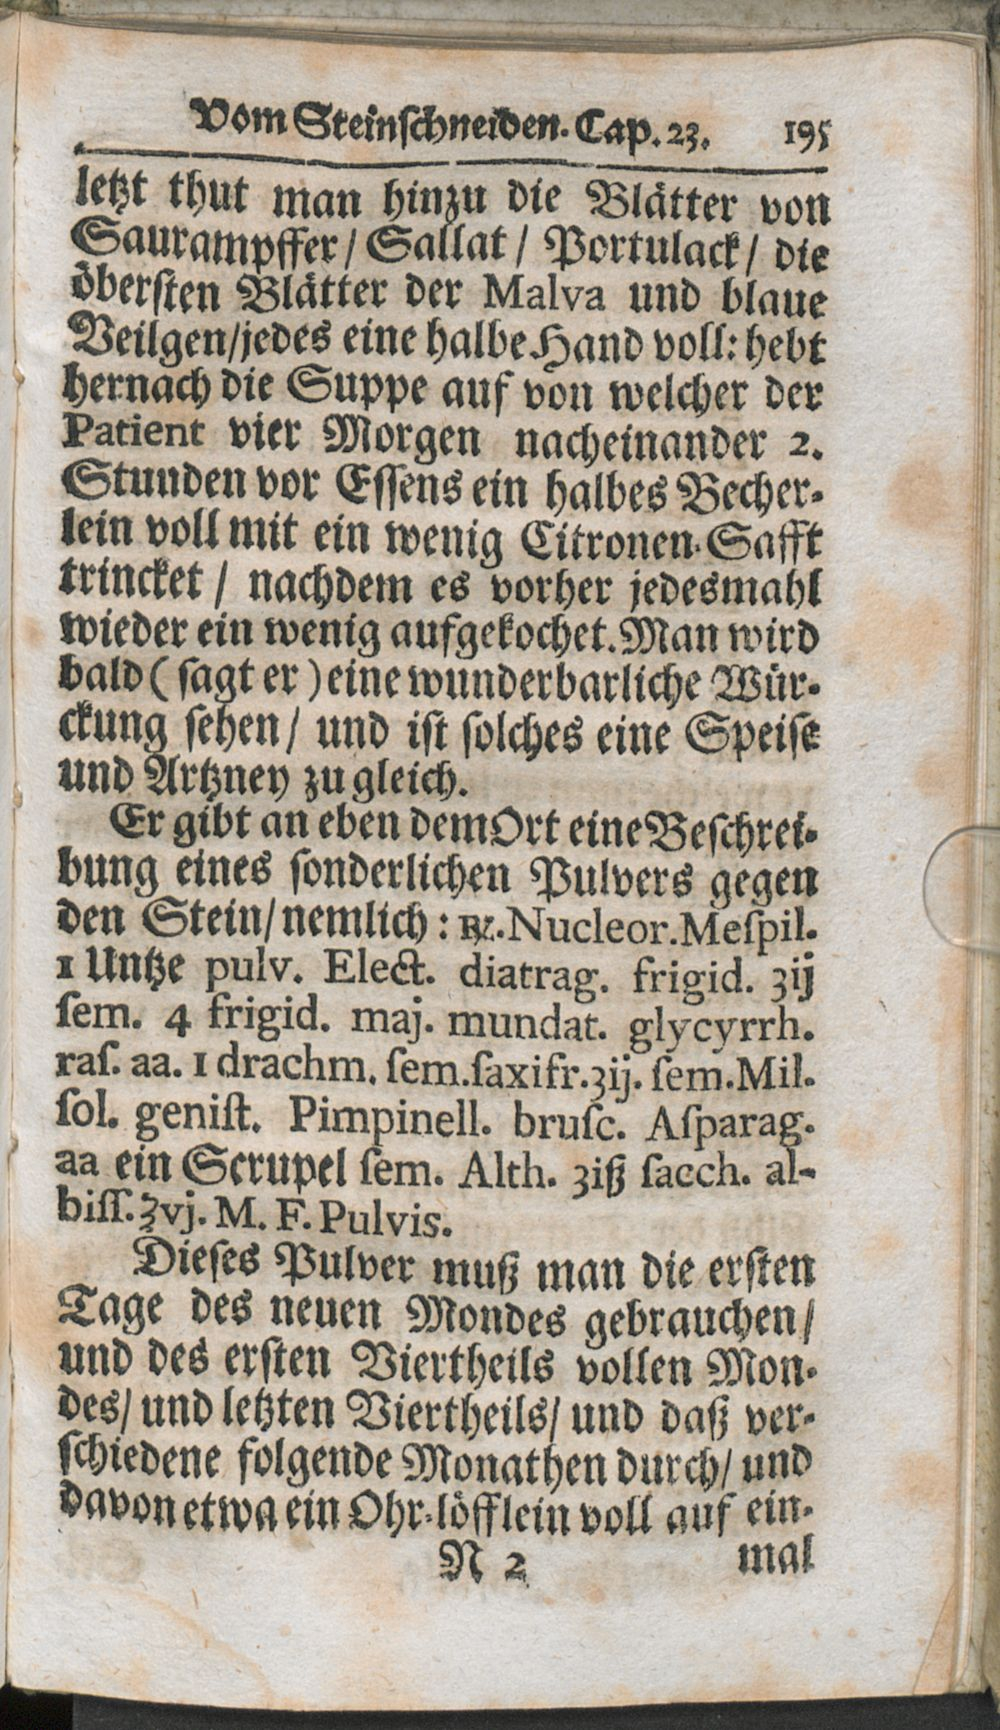 Vom Steinſchneiden. Cap. 23. 195
letzt thut man hinzu die Blätter von
Saurampffer / Sallat / Portulack / die
öberſten Blätter der Malva und blaue
Veilgen / jedes eine halbe Hand voll: hebt
hernach die Suppe auf von welcher der
Patient vier Morgen nacheinander 2.
Stunden vor Eſſens ein halbes Becher-
lein voll mit ein wenig Citronen-Safft
trincket / nachdem es vorher jedesmahl
wieder ein wenig aufgekochet. Man wird
bald ( ſagt er ) eine wunderbarliche Wür-
ckung ſehen / und iſt ſolches eine Speiſe
und Artzney zu gleich.
Er gibt an eben dem Ort eine Beſchrei-
bung eines ſonderlichen Pulvers gegen
den Stein / nemlich : ℞. Nucleor. Meſpil.
1 Untze pulv. Elect. diatrag. frigid. ʒij
ſem. 4 frigid. maj. mundat. glycyrrh.
raſ. aa. 1 drachm. ſem. ſaxifr. ʒij. ſem. Mil.
ſol. geniſt. Pimpinell. bruſc. Aſparag.
aa ein Scrupel ſem. Alth. ʒiß ſacch. al-
biſſ. ℥vj. M. F. Pulvis.
Dieſes Pulver muß man die erſten
Tage des neuen Mondes gebrauchen /
und des erſten Viertheils vollen Mon-
des / und letzten Viertheils / und daß ver-
ſchiedene folgende Monathen durch / und
davon etwa ein Ohr-löfflein voll auf ein-
N 2 mal